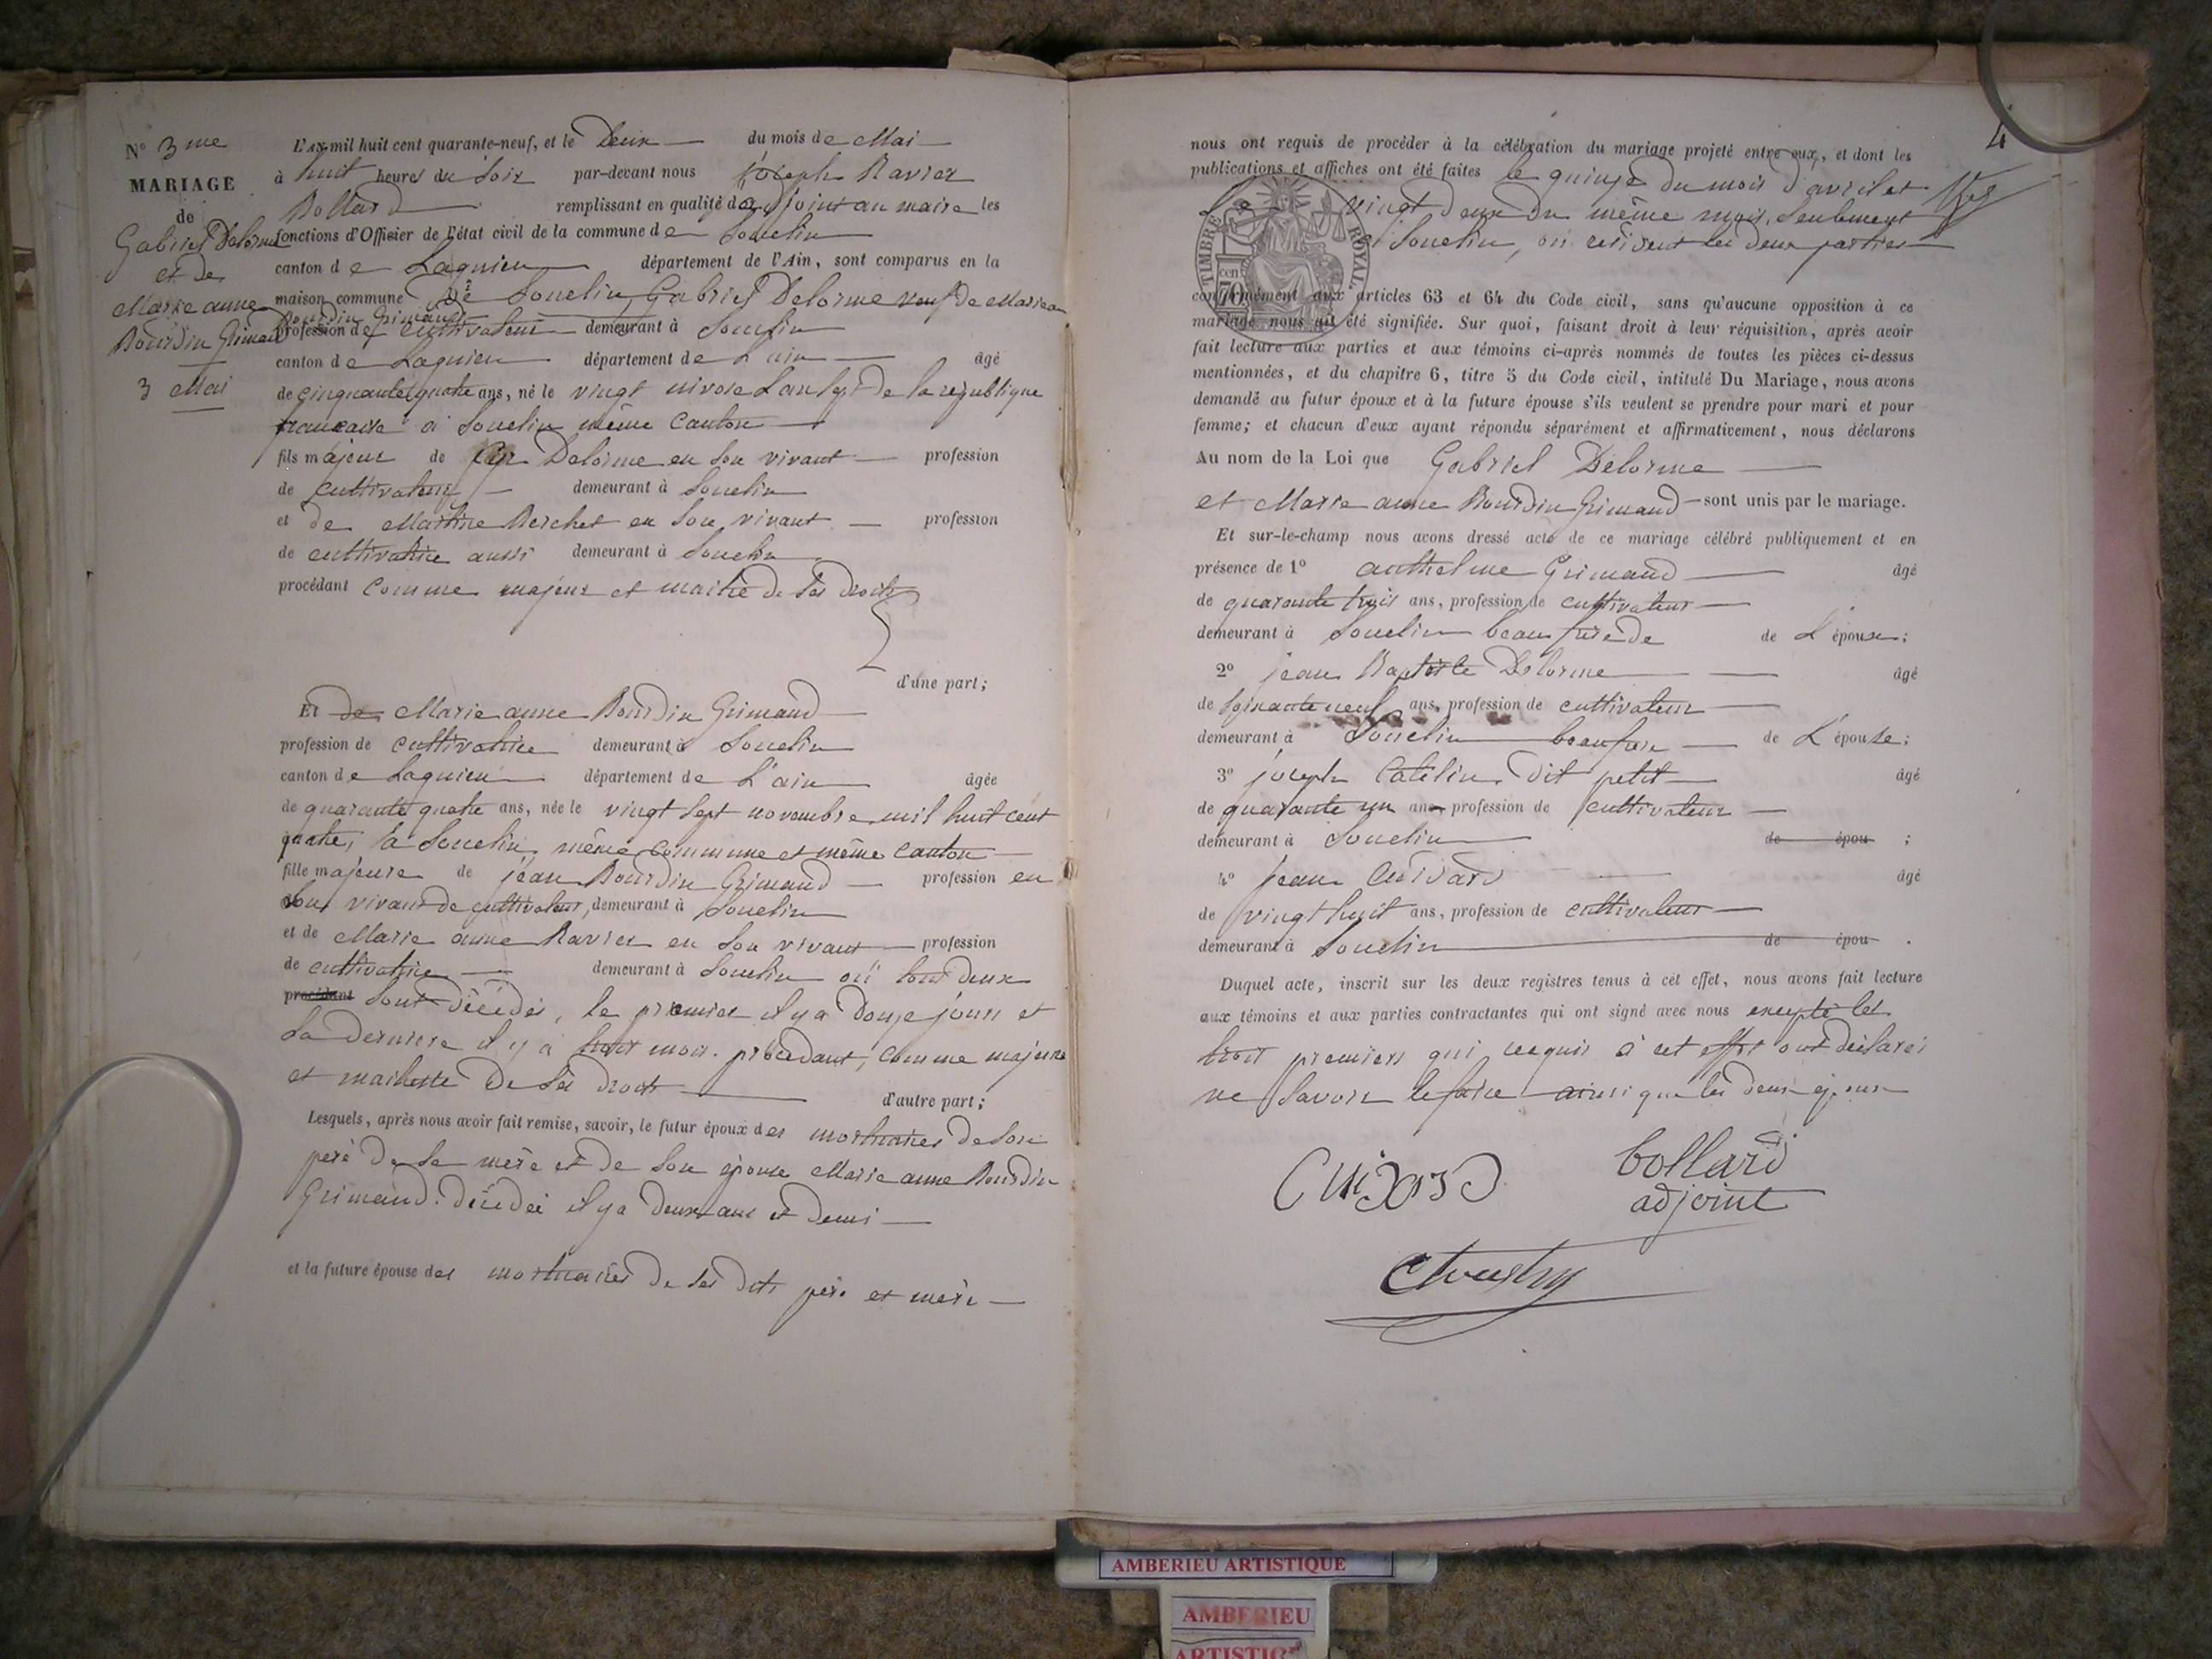 N° 3 me
MARIAGE
de
Gabriel Delorme
et de
Marie anne
Bourdin Grimand
3 Mai
L'an mil huit cent quarante-neuf, et le Deux du mois de Mai
à huit heures du Soir par-devant nous joseph Ravier
Bollard remplissant en qualité d'adjoint au maire les
fonctions d'Officier de l'état civil de la commune de Souclin
canton de Lagnieu département de l'Ain, sont comparus en la
maison commune de Souclin Gabriel Delorme veuf de Marie an
Bourdin Grimand
profession de cultivateur demeurant à Souclin
canton de Lagnieu département de L'ain âgé
de cinquante quatre ans, né le vingt nivose L'an sept de la republique
francaise à Souclin même Canton
fils majeur de Delorme en son vivant profession
de cultivateur demeurant à Souclin
et de Martine Berchet en son vivant profession
de cultivatrice aussi demeurant à Souclin
procédant comme majeur et maitre de ses droits
d'une part;
Et de Marie anne Bourdin Grimand
profession de cultivatrice demeurant à Souclin
canton de Lagnieu département de L'ain âgée
de quarante quatre ans, née le vingt sept novembre mil huit cent
quatre, à Souclin, même commune et même canton
fille majeure de jean Bourdin Grimand profession en
son vivant de cultivateur, demeurant à Souclin
et de Marie anne Ravier en son vivant profession
de cultivatrice demeurant à Souclin où tous deux
procédant sont décédés, le premier il y a douze jours et
la derniere il y a huit mois. procédant, comme majeure
et maitresse de ses droits d'autre part;
Lesquels, après nous avoir fait remise, savoir, le futur époux des mortuaires de son
père de sa mère et de son épouse Marie anne Bourdin
Grimand. décédée il y a deux ans et demi
et la future épouse des mortuaires de ses dits père et mère
4
nous ont requis de procéder à la célébration du mariage projeté entre eux, et dont les
publications et affiches ont été faites le quinze du mois d'avril et
le vingt deux du même mois, seulement
à Souclin, où résident les deux parties
TIMBRE ROYAL
70 cen
conformément aux articles 63 et 64 du Code civil, sans qu'aucune opposition à ce
mariage nous ait été signifiée. Sur quoi, faisant droit à leur réquisition, après avoir
fait lecture aux parties et aux témoins ci-après nommés de toutes les pièces ci-dessus
mentionnées, et du chapitre 6, titre 5 du Code civil, intitulé Du Mariage, nous avons
demandé au futur époux et à la future épouse s'ils veulent se prendre pour mari et pour
femme; et chacun d'eux ayant répondu séparément et affirmativement, nous déclarons
Au nom de la Loi que Gabriel Delorme
et Marie anne Bourdin Grimand sont unis par le mariage.
Et sur-le-champ nous avons dressé acte de ce mariage célébré publiquement et en
présence de 1° anthelme Grimand âgé
de quarante trois ans, profession de cultivateur
demeurant à Souclin beau frère de de L'épouse;
2° jean Baptiste Delorme âgé
de soixante neuf ans, profession de cultivateur
demeurant à Souclin beaufrere de L'épouse;
3° joseph Catelin dit petit âgé
de quarante un ans profession de cultivateur
demeurant à Souclin de épou ;
4° jean Cuidard âgé
de vingt huit ans, profession de cultivateur
demeurant à Souclin de épou .
Duquel acte, inscrit sur les deux registres tenus à cet effet, nous avons fait lecture
aux témoins et aux parties contractantes qui ont signé avec nous excepté les
trois premiers qui requis à cet effet ont déclarés
ne savoir le faire ainsi que les deux époux
Cuidard
bollard
adjoint
AMBERIEU ARTISTIQUE
AMBERIEU
ARTISTIQ